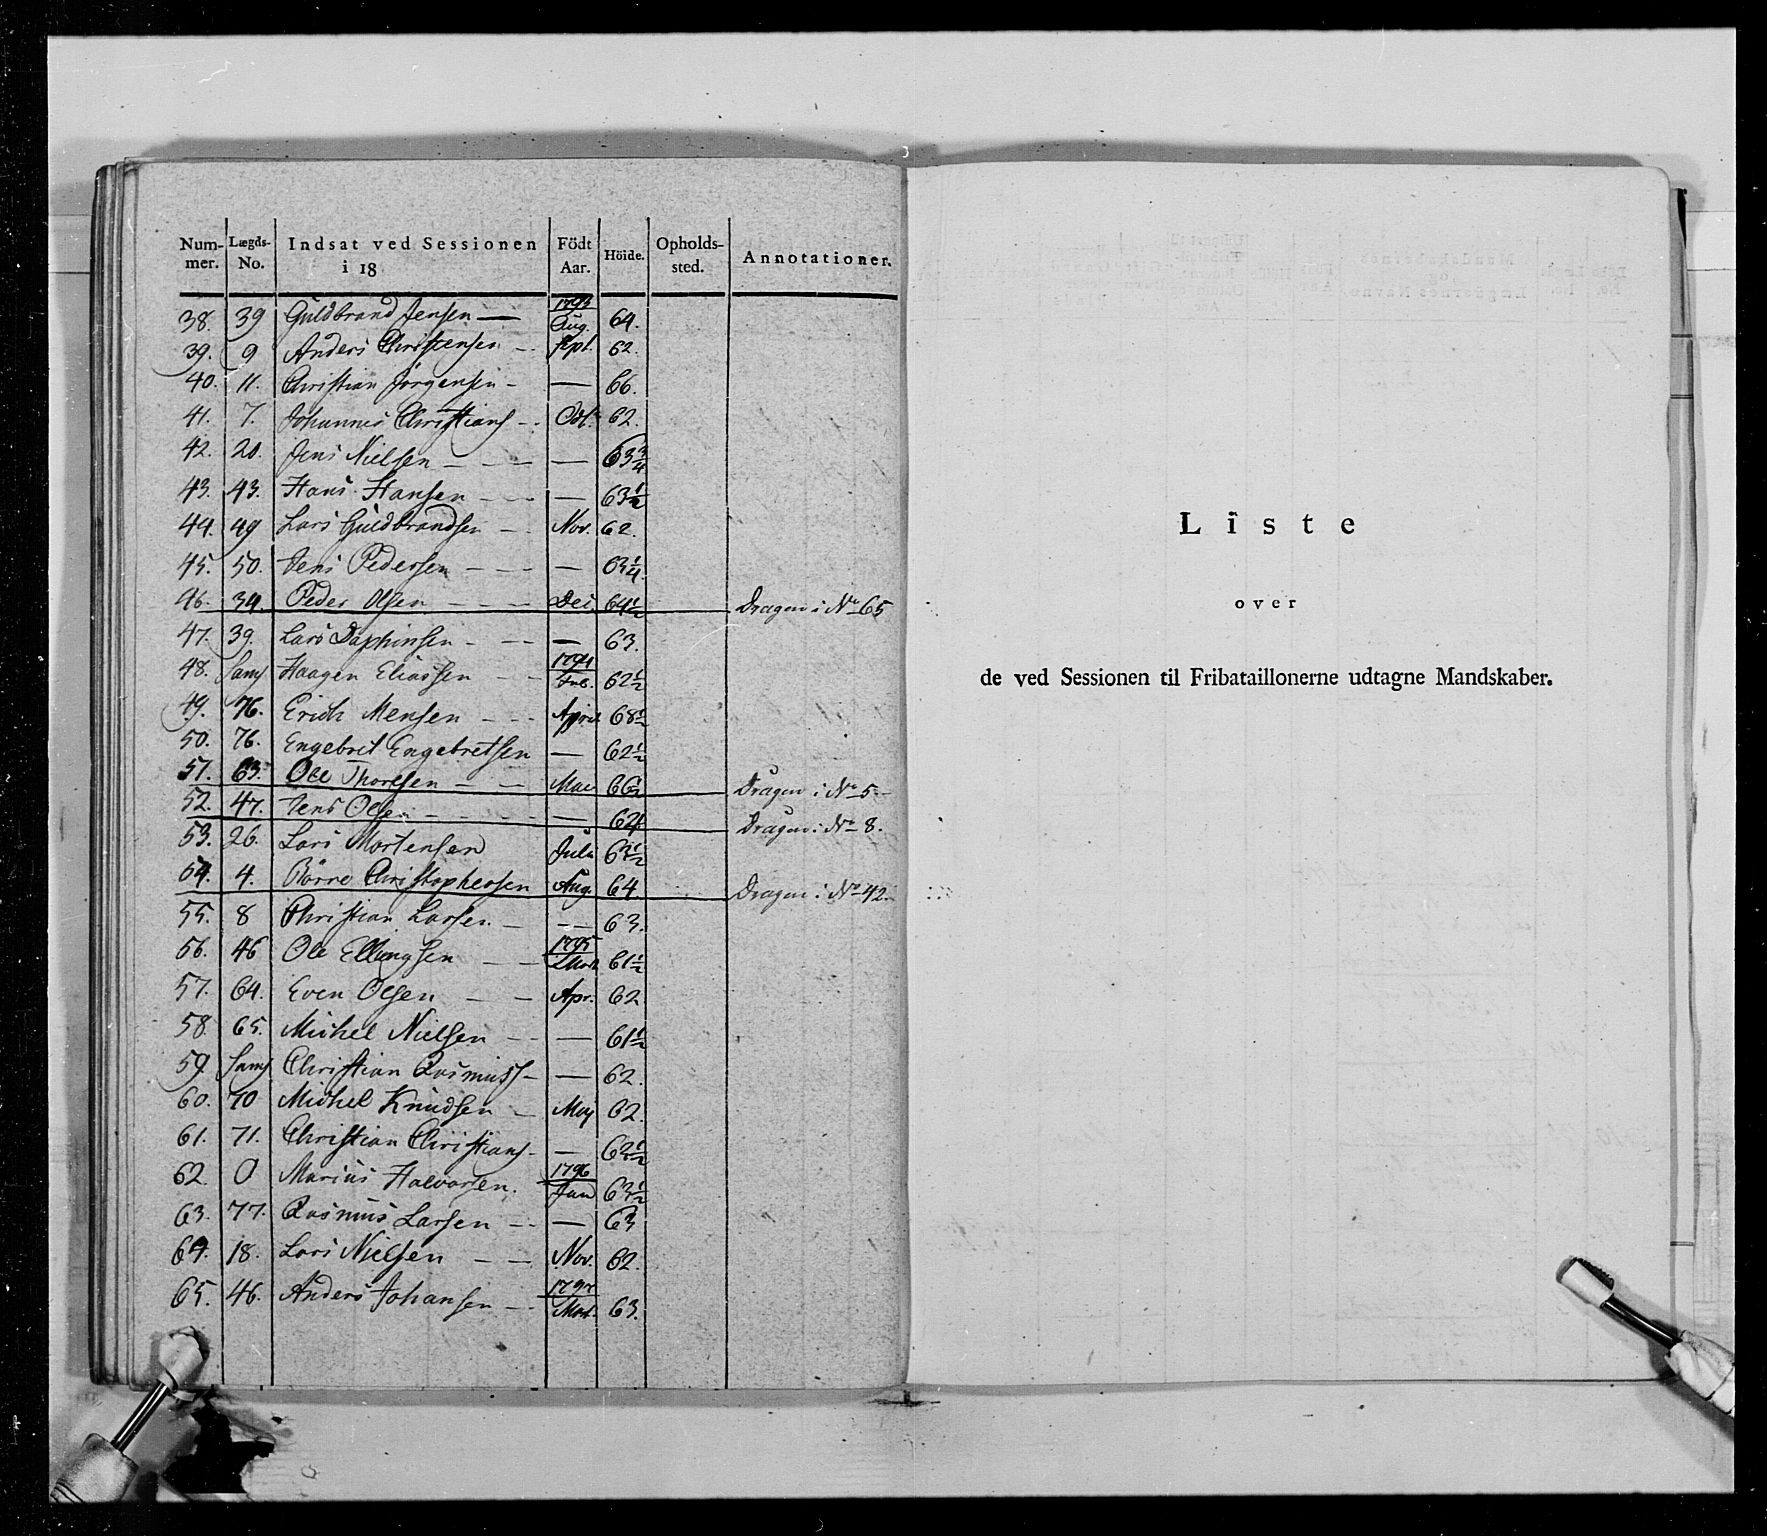 Num- Lægds- Indsat ved Sessionen Födt Höide. Opholds- Annotationer.
mer. No. i 18 Aar. sted.
38. 39 Guldbrand Jensen — 1793 Aug. 64.
39. 9 Anders Christensen - Sept. 62.
40. 11. Christian Jörgensen - — 66.
41. 7. Johannes Christians - Oct. 62.
42. 20. Jens Nielsen - — 63 3/4
43. 43. Hans Hansen - — 63 1/2
44. 49 Lars Guldbrandsen - Nov. 62.
45. 50. Jens Pedersen - — 63 1/4
46. 34. Peder Olsen - Dec. 64 1/2 Dragon i No 65
47. 39. Lars - — 63.
48. Sams Haagen Eliassen - 1794 Feb. 62 1/2
49. 76. Erich Mensen - April 68 1/2
50. 76. Engebret Engebretsen — 62 1/2
51. 63. Ole Thoresen - Mai 66 1/2 Dragon i No 5
52. 47. Jens Olsen - — 64 Dragon i No 8.
53. 26. Lars Mortensen Juli 63 1/2
54. 4. Börre Christophersen Aug. 64. Dragon i No 42.
55. 8 Christian Larsen - — 63.
56. 46 Ole Ellingsen - 1795 Mart. 61 1/2
57. 64. Even Olsen - Apr. 62
58 65. Michel Nielsen - — 61 1/2
59. Sams Christian Rasmuss - — 62.
60. 70 Michel Knudsen - Maj 62.
61. 71. Christian Christians - — 62 1/2
62. 0 Marius Halvorsen. 1796 Jan 63 1/2
63. 77. Rasmus Larsen - — 63
64. 18. Lars Nielsen - Nov. 62.
65. 46. Anders Johansen - 1797 Mart. 63.
Liste
over
de ved Sessionen til Fribataillonerne udtagne Mandskaber.